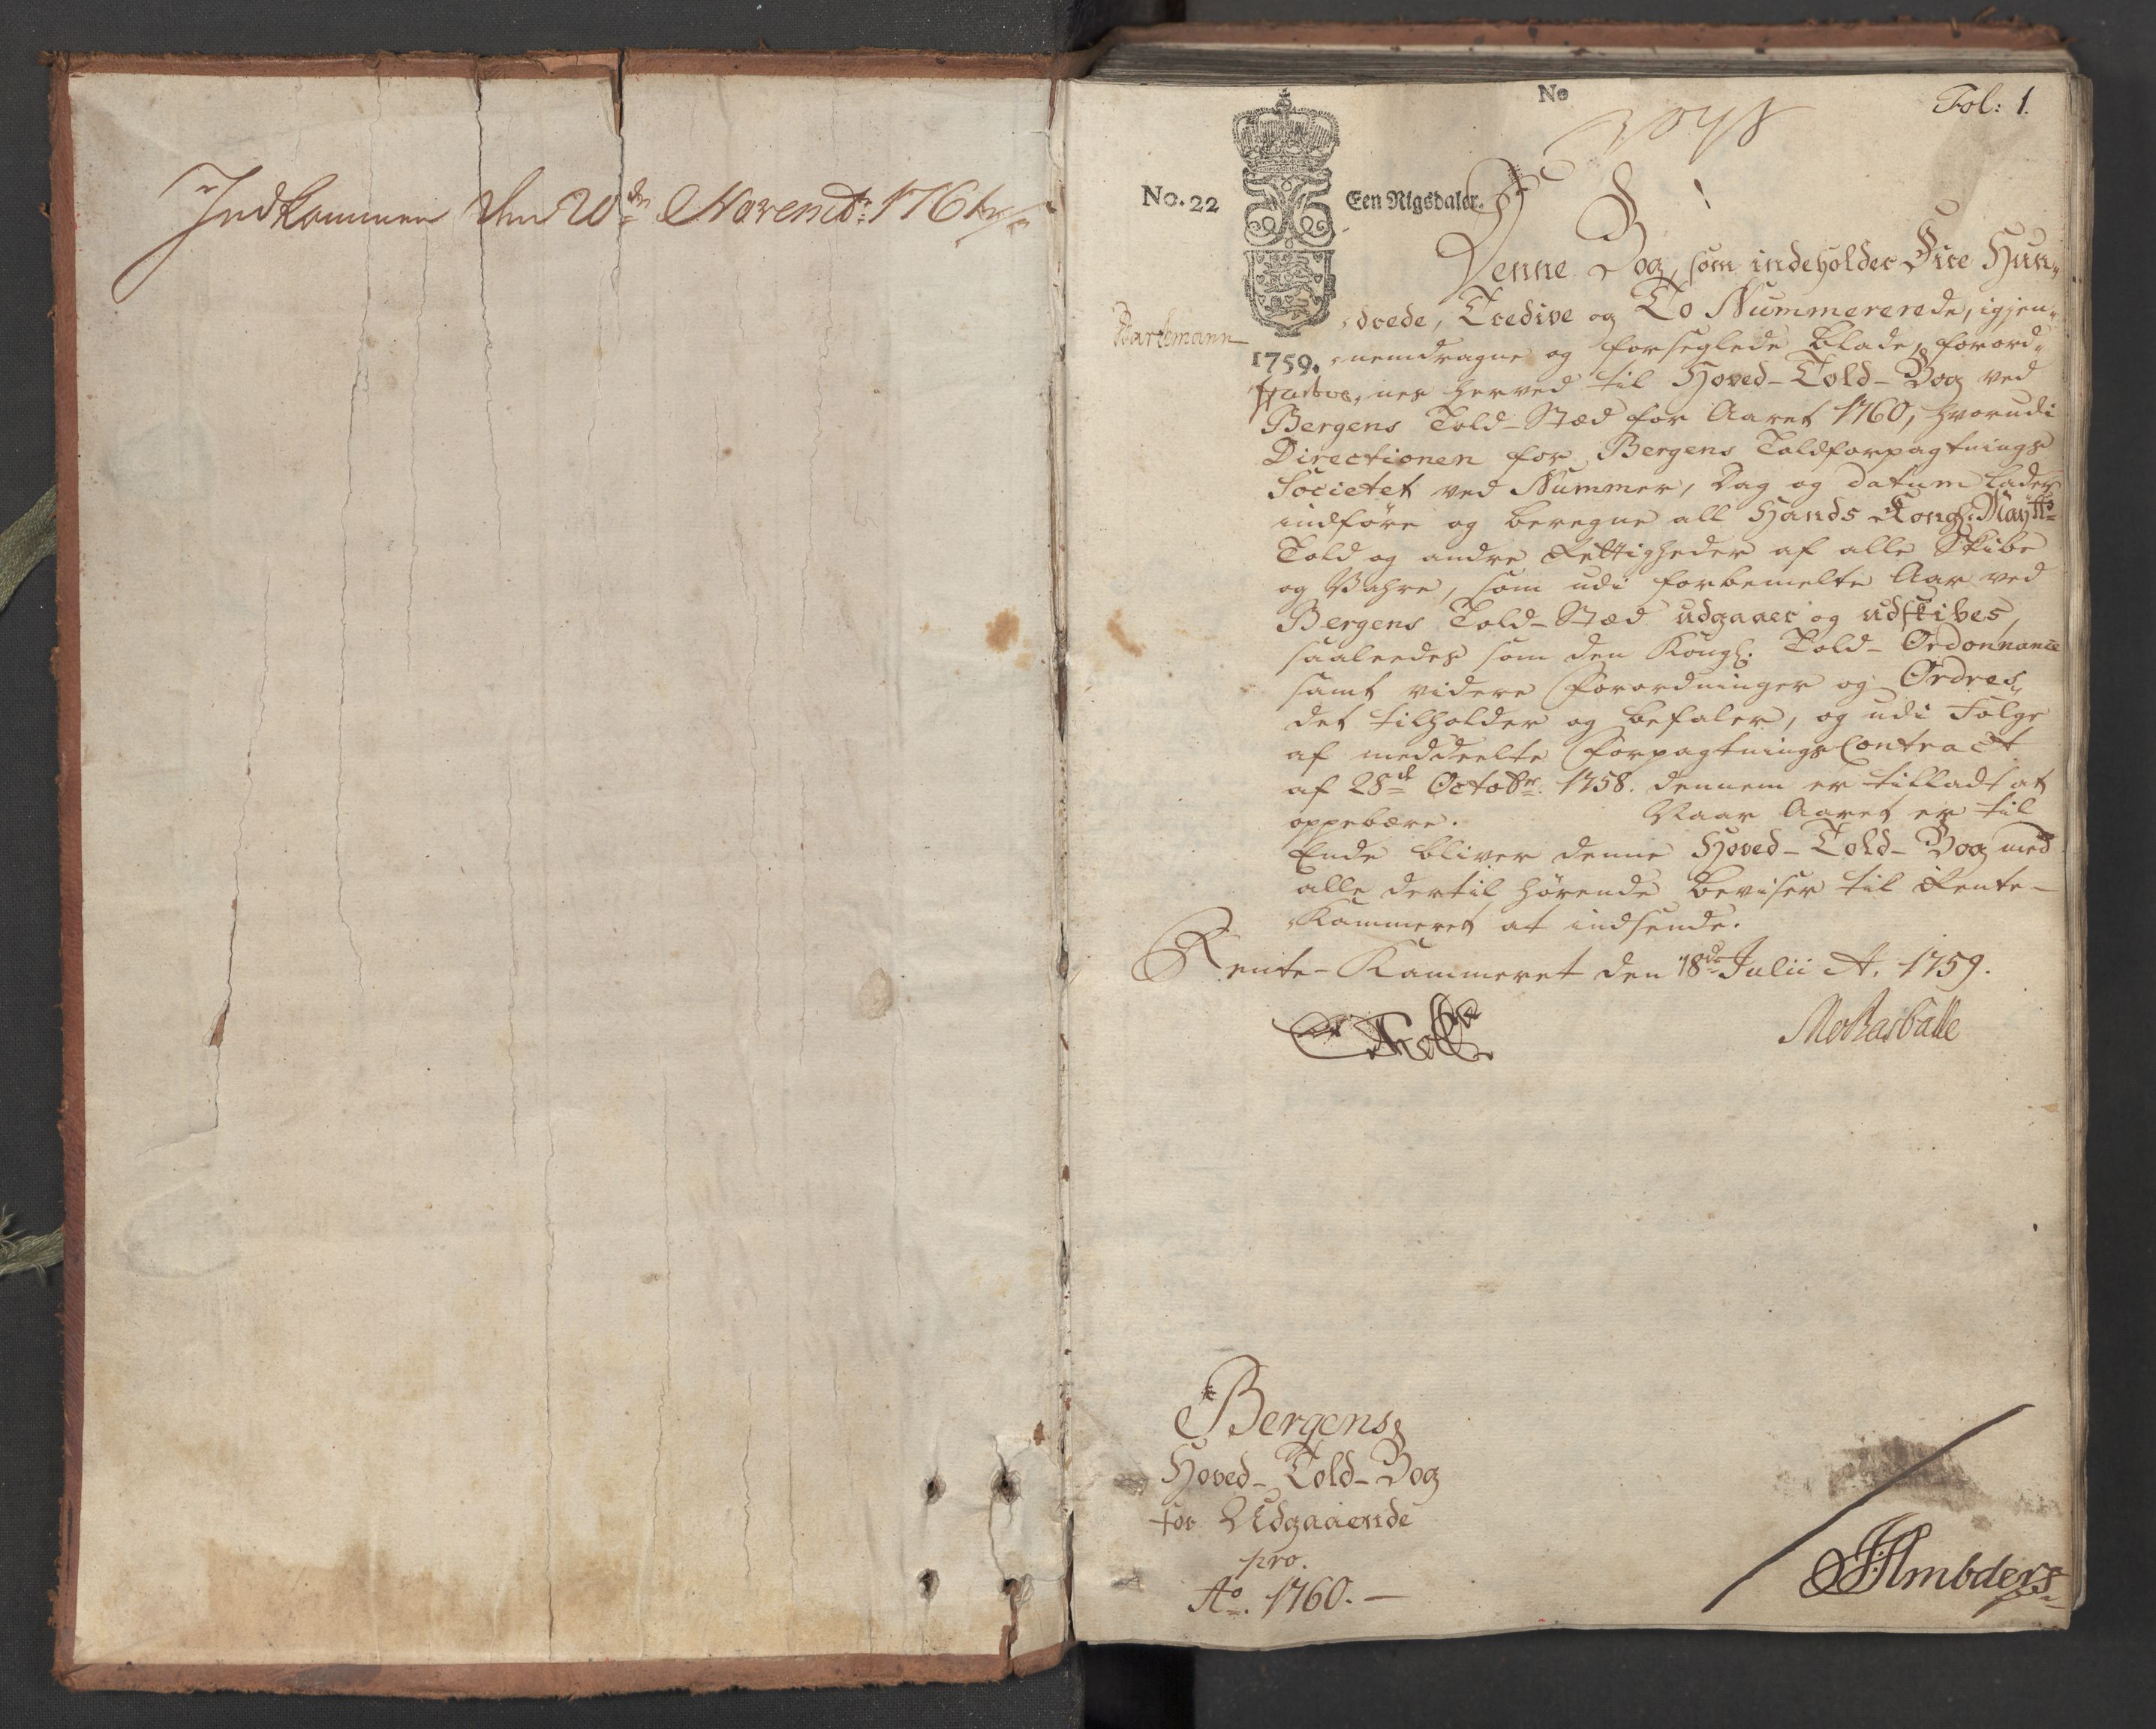 Indkommen den 20de Novembr: 1761
No
Fol: 1.
No. 22
Een Rigsdaler.
Denne Bog, som indeholder Fire Hun-
drede, Tredive og To Nummererede, igjen-
1759. nemdragne og forseglede Blade, forord-
nes herved til Hoved-Told-Bog ved
Bergens Told-Stæd for Aaret 1760, hvorudi
Directionen for Bergens Toldforpagtnings
Societet ved Nummer, Dag og datum lader
indføre og beregne all Hands Kongl: Maytts
Told og andre Rettigheder af alle Skibe
og Vahre, som udi forbemelte Aar ved
Bergens Told-Stæd udgaaer og udskibes,
saaleedes som den Kongl. Told-Ordonnance
samt videre Forordninger og Ordres
det tilholder og befaler, og udi Følge
af meddeelte Forpagtnings Contract
af 28de Octobr. 1758. dennem er tilladt at
oppebære. Naar Aaret er til
Ende bliver denne Hoved-Told-Bog med
alle dertil hørende Beviser til Rente-
Kammeret at indsende.
Rente-Kammeret den 18de Julii A. 1759.
Bergens
Hoved-Told-Bog
for Udgaaende
pro.
Ao. 1760.